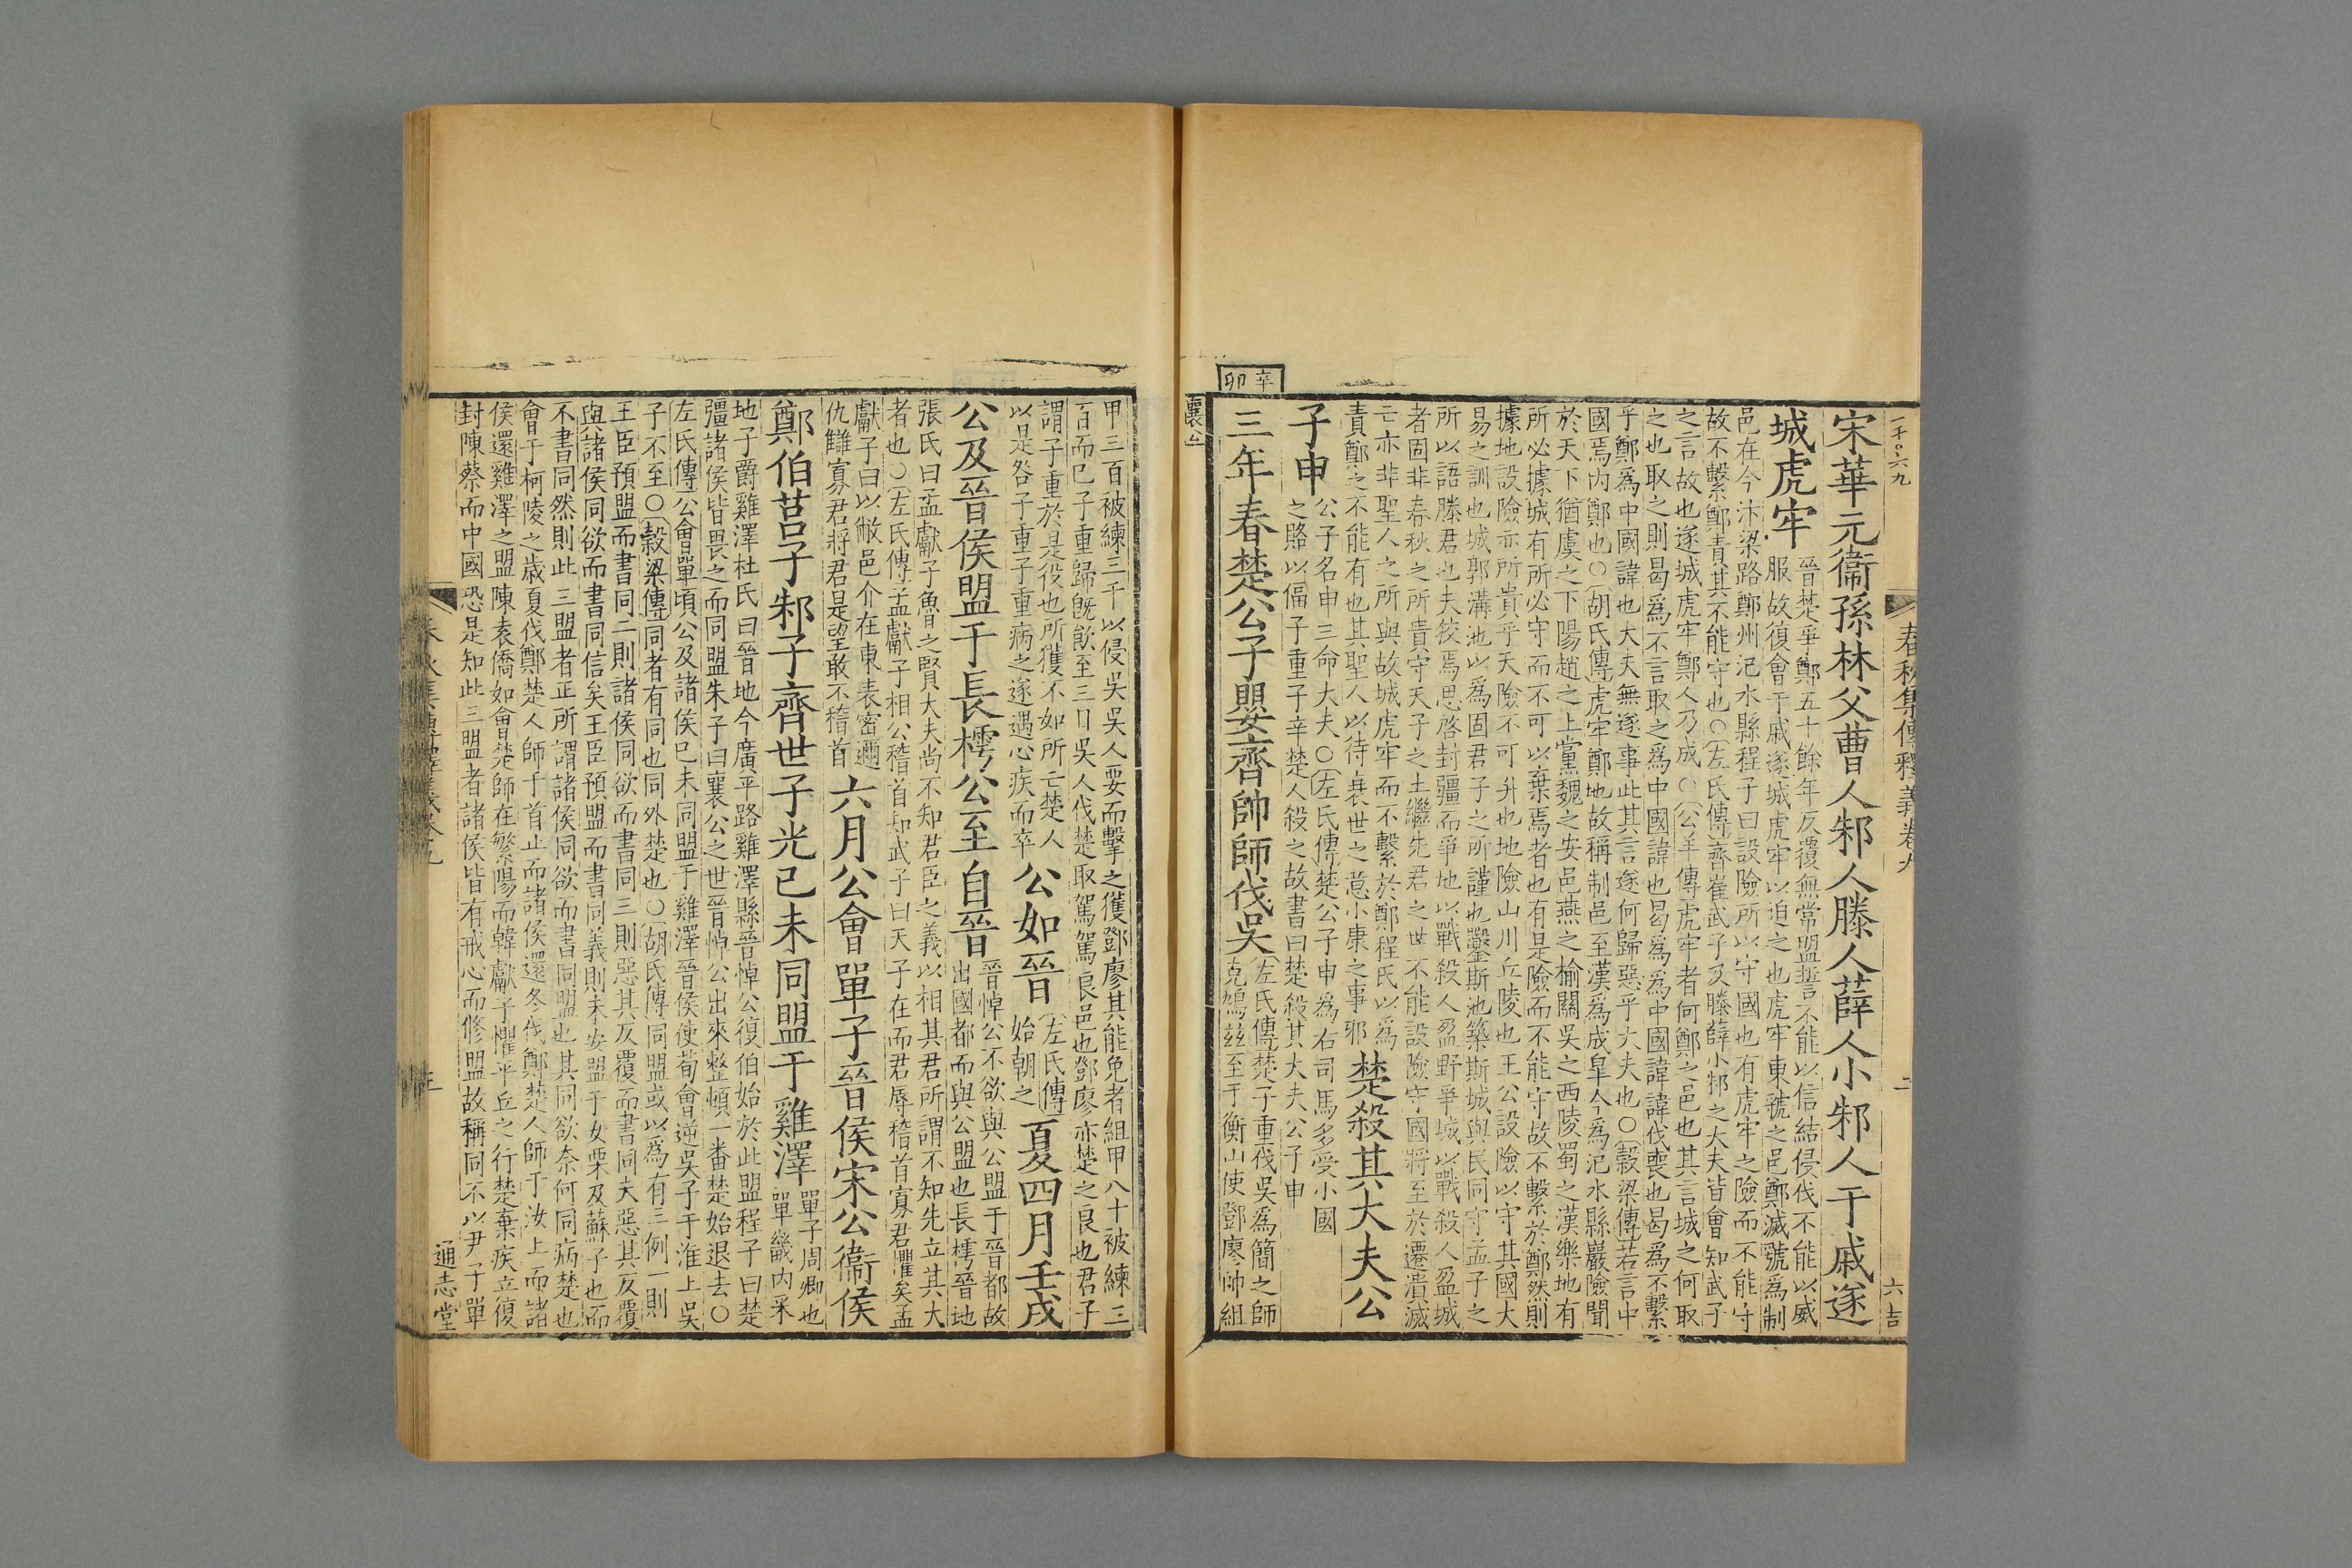 一千〇六九
春秋集傳釋義卷九
二
六吉
宋華元衞孫林父曹人邾人滕人薛人小邾人于戚遂
城虎牢
晉楚爭鄭五十餘年反覆無常盟誓不能以信結侵伐不能以威
服故復會于戚遂城虎牢以迫之也虎牢東虢之邑鄭滅虢爲制
邑在今汴梁路鄭州汜水縣程子曰設險所以守國也有虎牢之險而不能守
故不繫鄭責其不能守也○左氏傳齊崔武子及滕薛小邾之大夫皆會知武子
之言故也遂城虎牢鄭人乃成○公羊傳虎牢者何鄭之邑也其言城之何取
之也取之則曷爲不言取之爲中國諱也曷爲爲中國諱諱伐喪也曷爲不繫
乎鄭爲中國諱也大夫無遂事此其言遂何歸惡乎大夫也○穀梁傳若言中
國焉内鄭也○胡氏傳虎牢鄭地故稱制邑至漢爲成皐今爲汜水縣巖險聞
於天下猶虞之下陽趙之上黨魏之安邑燕之榆關吳之西陵蜀之漢樂地有
所必據城有所必守而不可以棄焉者也有是險而不能守故不繫於鄭然則
據地設險亦所貴乎天險不可升也地險山川丘陵也王公設險以守其國大
易之訓也城郭溝池以爲固君子之所謹也鑿斯池築斯城與民同守孟子之
所以語滕君也夫狡焉思啓封疆而爭地以戰殺人盈野爭城以戰殺人盈城
者固非春秋之所貴守天子之土繼先君之世不能設險守國將至於遷潰滅
亡亦非聖人之所與故城虎牢而不繫於鄭程氏以爲
責鄭之不能有也其聖人以待衰世之意小康之事邪
楚殺其大夫公
子申
公子名申三命大夫○左氏傳楚公子申爲右司馬多受小國
之賂以偪子重子辛楚人殺之故書曰楚殺其大夫公子申
辛卯
三年春楚公子嬰齊帥師伐吳
左氏傳楚子重伐吳爲簡之師
克鳩兹至于衡山使鄧廖帥組
襄公
甲三百被練三千以侵吳吳人要而擊之獲鄧廖其能免者組甲八十被練三
百而已子重歸旣飮至三日吳人伐楚取駕駕良邑也鄧廖亦楚之良也君子
謂子重於是役也所獲不如所亡楚人
以是咎子重子重病之遂遇心疾而卒
公如晉
左氏傳
始朝之
夏四月壬戌
公及晉侯盟于長樗公至自晉
晉悼公不欲與公盟于晉都故
出國都而與公盟也長樗晉地
張氏曰孟獻子魯之賢大夫尚不知君臣之義以相其君所謂不知先立其大
者也○左氏傳孟獻子相公稽首知武子曰天子在而君辱稽首寡君懼矣孟
獻子曰以敝邑介在東表密邇
仇讎寡君將君是望敢不稽首
六月公會單子晉侯宋公衞侯
鄭伯莒子邾子齊世子光己未同盟于雞澤
單子周卿也
單畿内采
地子爵雞澤杜氏曰晉地今廣平路雞澤縣晉悼公復伯始於此盟程子曰楚
彊諸侯皆畏之而同盟朱子曰襄公之世晉悼公出來整頓一番楚始退去○
左氏傳公會單頃公及諸侯己未同盟于雞澤晉侯使荀會逆吳子于淮上吳
子不至○穀梁傳同者有同也同外楚也○胡氏傳同盟或以爲有三例一則
王臣預盟而書同二則諸侯同欲而書同三則惡其反覆而書同夫惡其反覆
與諸侯同欲而書同信矣王臣預盟而書同義則未安盟于女栗及蘇子也而
不書同然則此三盟者正所謂諸侯同欲而書同盟也其同欲奈何同病楚也
會于柯陵之歲夏伐鄭楚人師于首止而諸侯還冬伐鄭楚人師于汝上而諸
侯還雞澤之盟陳袁僑如會楚師在繁陽而韓獻子懼平丘之行楚棄疾立復
封陳蔡而中國恐是知此三盟者諸侯皆有戒心而修盟故稱同不以尹子單
通志堂